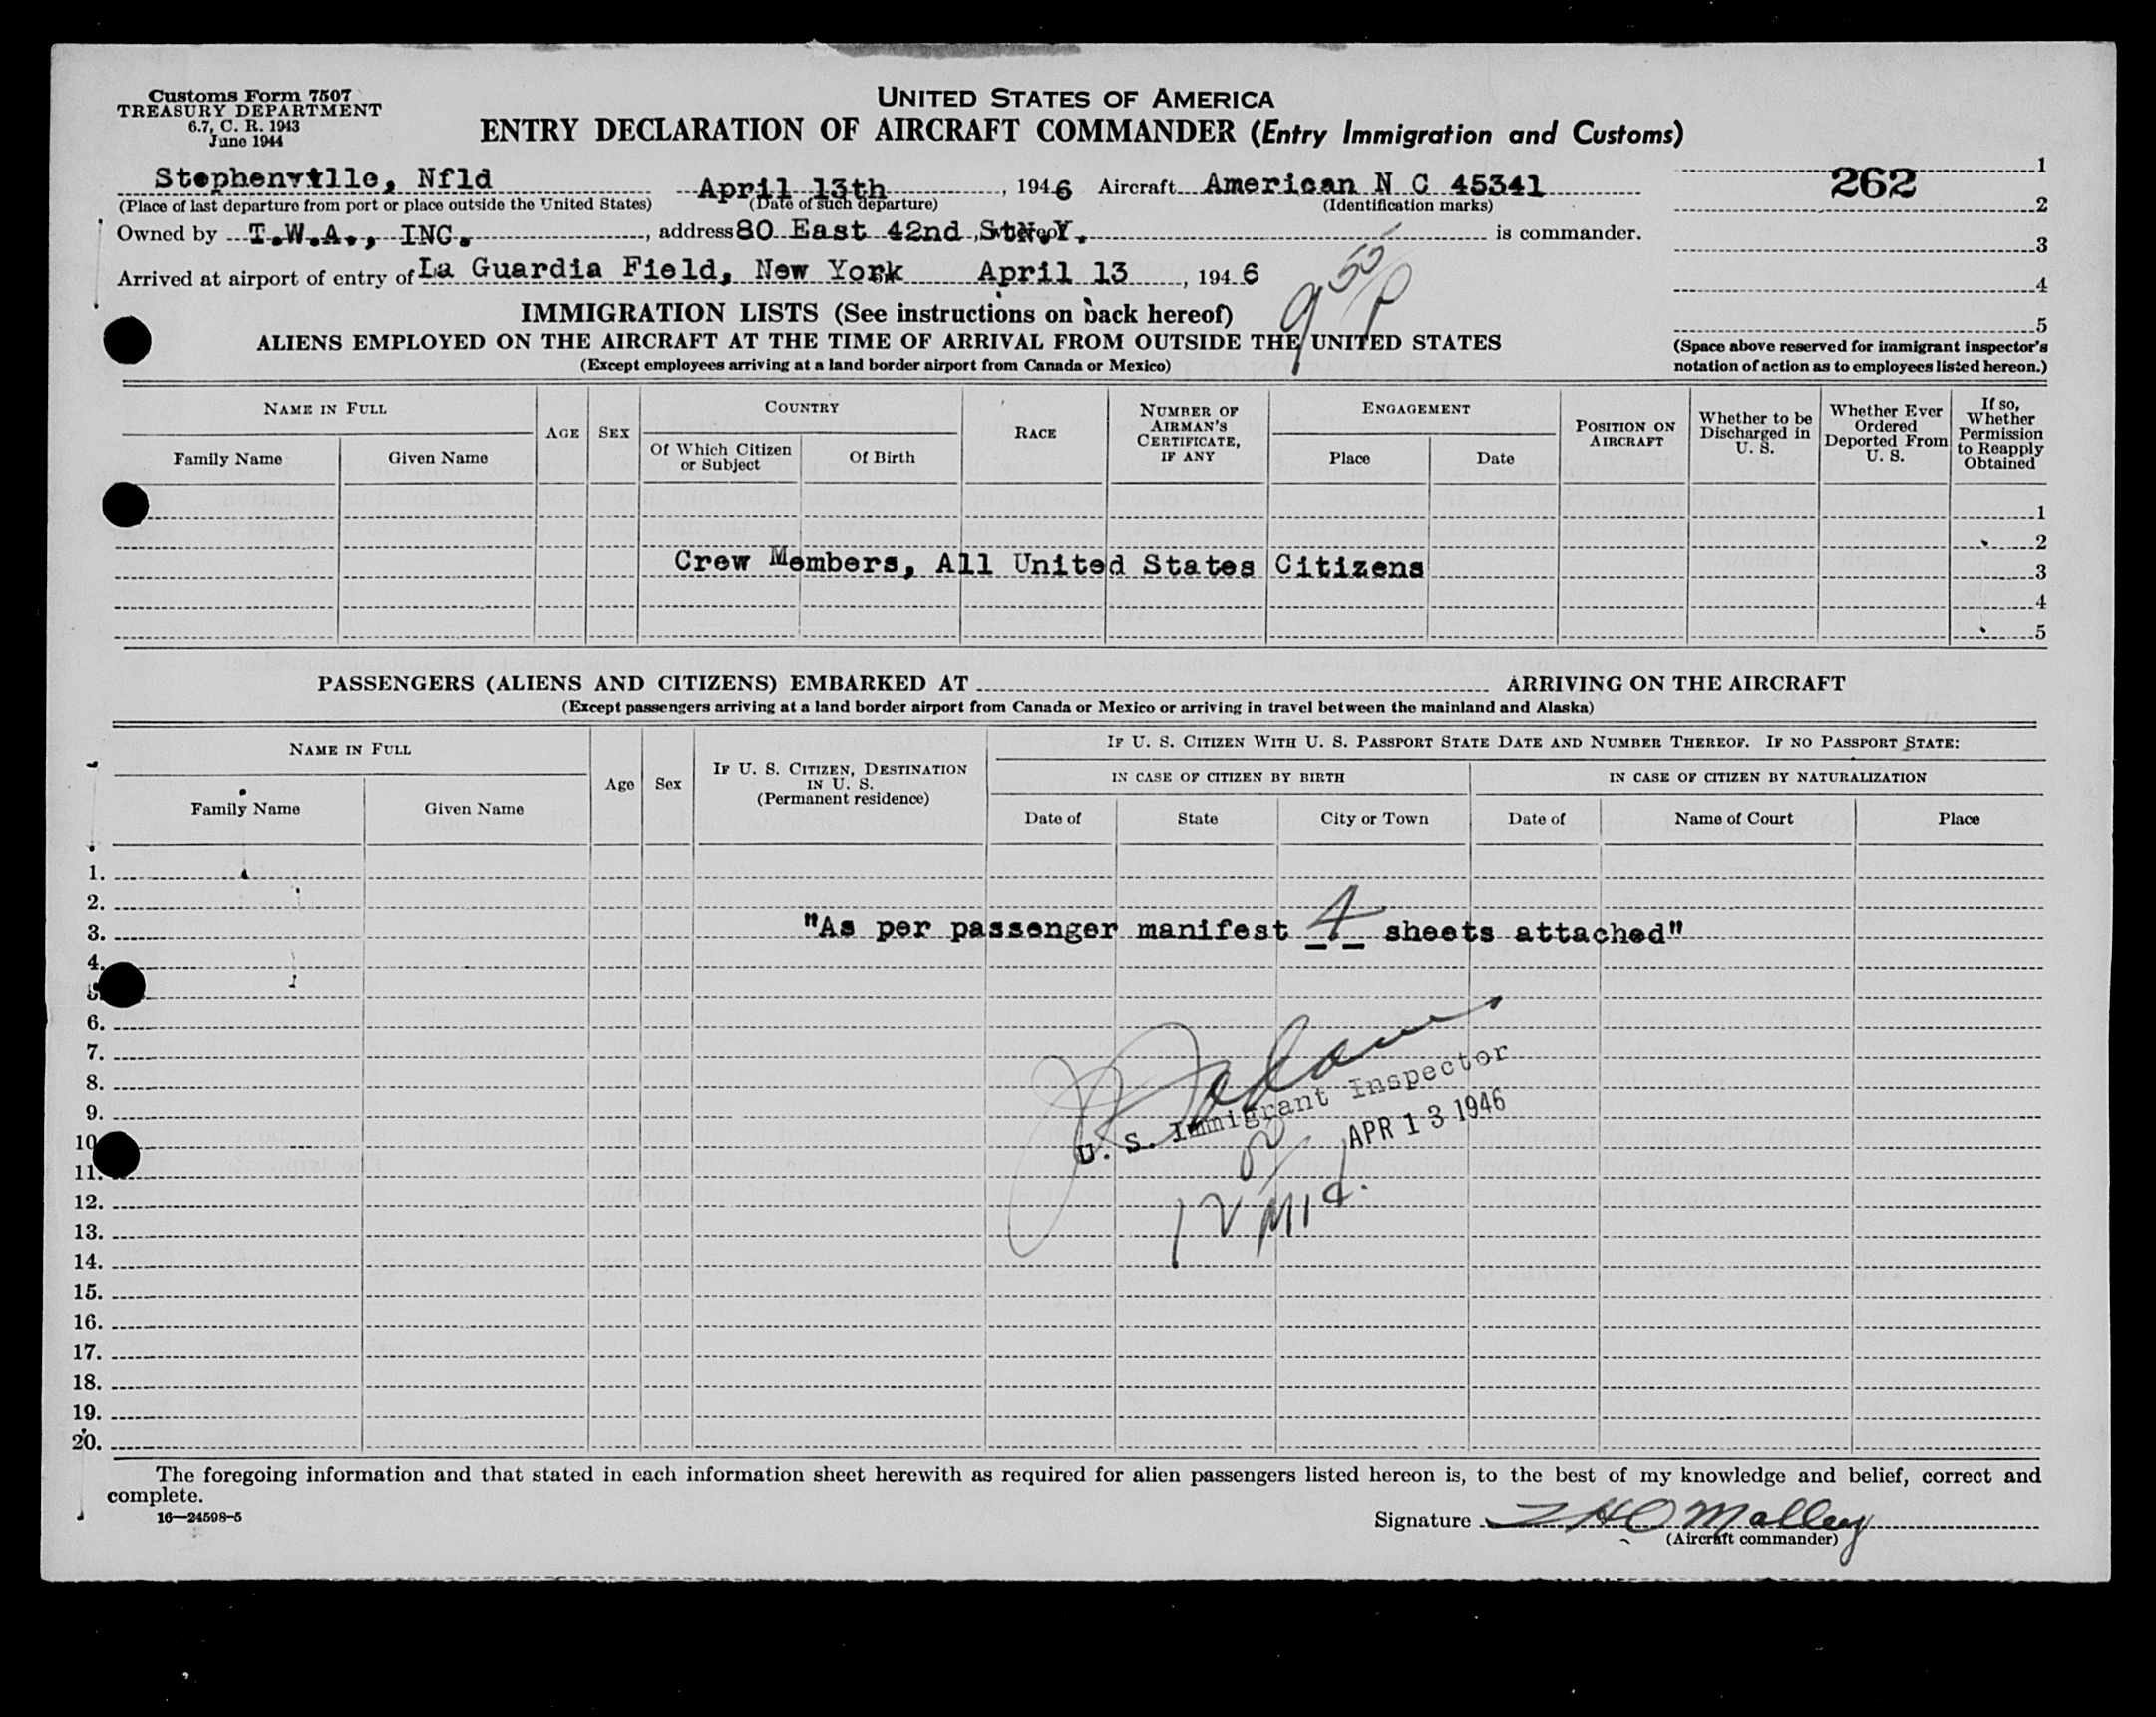 Customs Form 7507
TREASURY DEPARTMENT
6.7, C. R. 1943
June 1944
UNITED STATES OF AMERICA
ENTRY DECLARATION OF AIRCRAFT COMMANDER (Entry Immigration and Customs)
Stephenville, Nfld April 13th, 1946 Aircraft American N C 45341
(Place of last departure from port or place outside the United States) (Date of such departure) (Identification marks)
262
1
2
3
4
5
(Space above reserved for immigrant inspector's
notation of action as to employees listed hereon.)
Owned by T.W.A., INC., address 80 East 42nd St N.Y. is commander.
Arrived at airport of entry of La Guardia Field, New York April 13, 1946
9 55/P
IMMIGRATION LISTS (See instructions on back hereof)
ALIENS EMPLOYED ON THE AIRCRAFT AT THE TIME OF ARRIVAL FROM OUTSIDE THE UNITED STATES
(Except employees arriving at a land border airport from Canada or Mexico)
NAME IN FULL
Family Name Given Name
AGE SEX
COUNTRY
Of Which Citizen or Subject Of Birth
RACE
NUMBER OF AIRMAN'S CERTIFICATE, IF ANY
ENGAGEMENT
Place Date
POSITION ON AIRCRAFT
Whether to be Discharged in U. S.
Whether Ever Ordered Deported From U. S.
If so, Whether Permission to Reapply Obtained
1
2
Crew Members, All United States Citizens
3
4
5
PASSENGERS (ALIENS AND CITIZENS) EMBARKED AT ARRIVING ON THE AIRCRAFT
(Except passengers arriving at a land border airport from Canada or Mexico or arriving in travel between the mainland and Alaska)
NAME IN FULL
Family Name Given Name
Age Sex
IF U. S. CITIZEN, DESTINATION IN U. S. (Permanent residence)
IF U. S. CITIZEN WITH U. S. PASSPORT STATE DATE AND NUMBER THEREOF. IF NO PASSPORT STATE:
IN CASE OF CITIZEN BY BIRTH IN CASE OF CITIZEN BY NATURALIZATION
Date of State City or Town Date of Name of Court Place
1.
2.
3. "As per passenger manifest 4 sheets attached"
4.
5.
6.
7.
8.
9.
U. S. Immigrant Inspector
APR 13 1946
10.
11.
12 Mid.
12.
13.
14.
15.
16.
17.
18.
19.
20.
The foregoing information and that stated in each information sheet herewith as required for alien passengers listed hereon is, to the best of my knowledge and belief, correct and
complete.
16—24598-5
Signature O'Malley
(Aircraft commander)